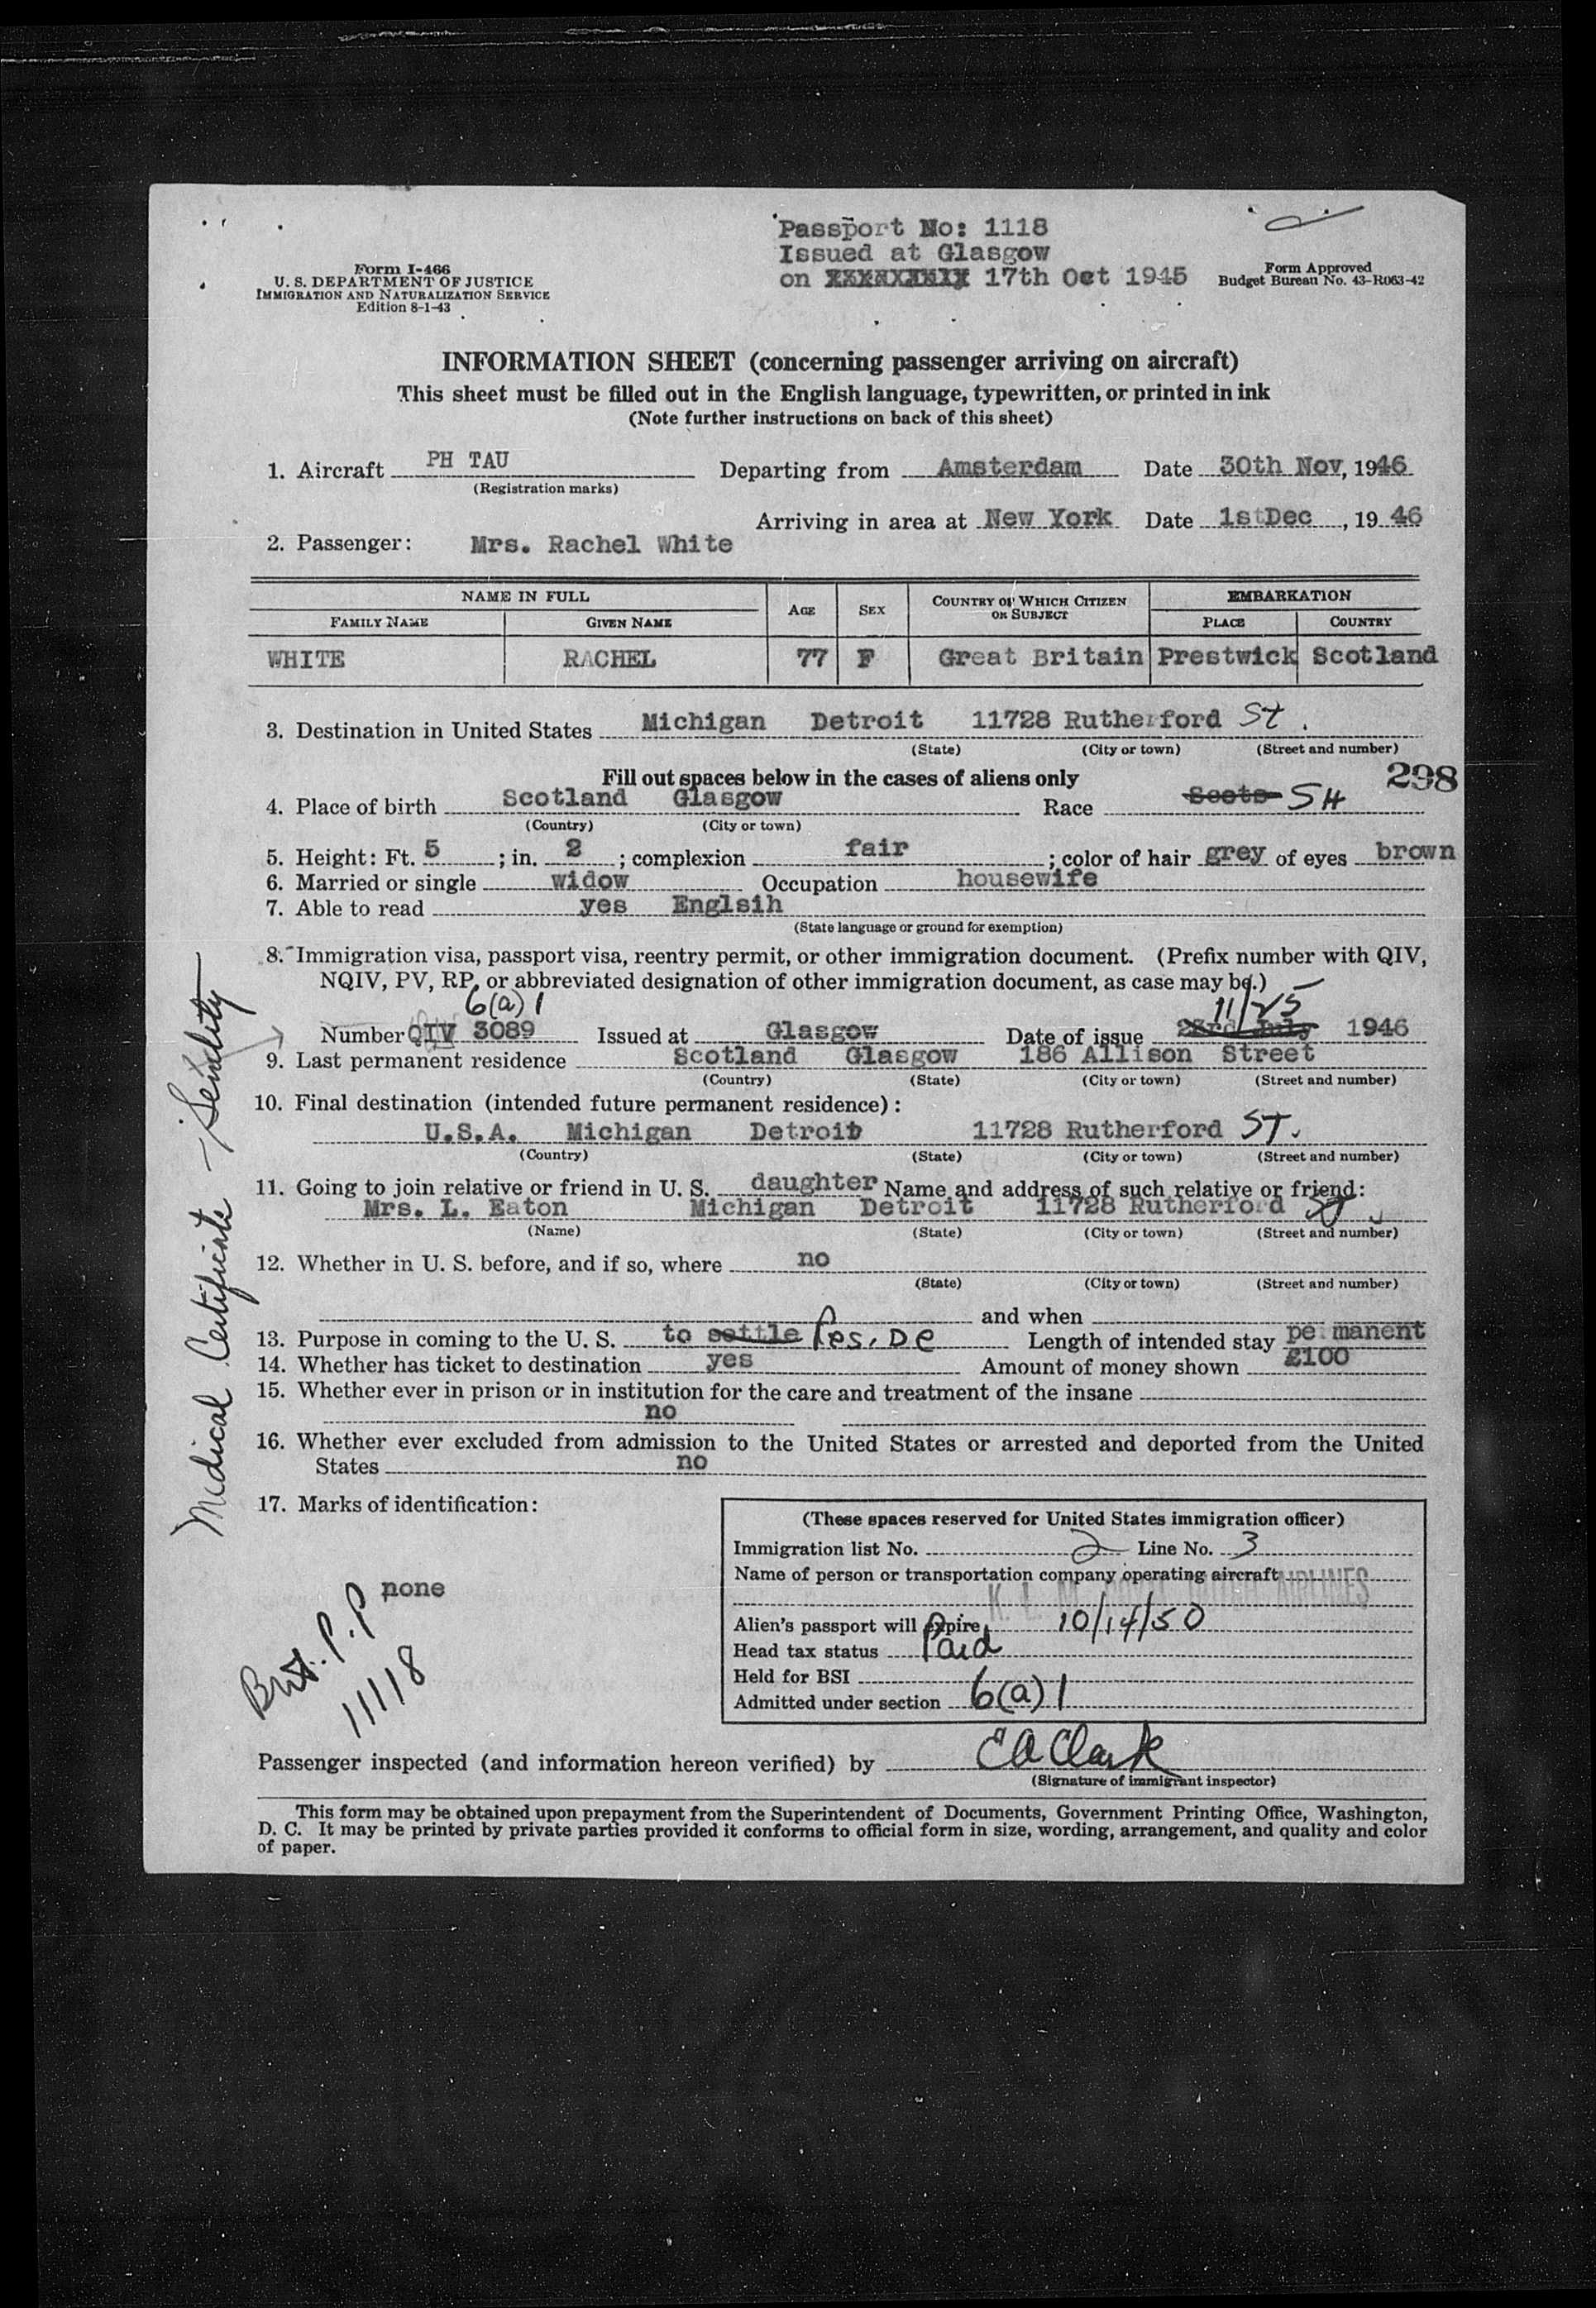 Passport No: 1118
Issued at Glasgow
on 17th Oct 1945
Form I-466
U. S. DEPARTMENT OF JUSTICE
IMMIGRATION AND NATURALIZATION SERVICE
Edition 8-1-43
Form Approved
Budget Bureau No. 43-R063-42
INFORMATION SHEET (concerning passenger arriving on aircraft)
This sheet must be filled out in the English language, typewritten, or printed in ink
(Note further instructions on back of this sheet)
1. Aircraft PH TAU Departing from Amsterdam Date 30th Nov, 1946
(Registration marks)
Arriving in area at New York Date 1st Dec, 19 46
2. Passenger: Mrs. Rachel White
NAME IN FULL AGE SEX COUNTRY OF WHICH CITIZEN OR SUBJECT EMBARKATION
FAMILY NAME GIVEN NAME PLACE COUNTRY
WHITE RACHEL 77 F Great Britain Prestwick Scotland
3. Destination in United States Michigan Detroit 11728 Rutherford St.
(State) (City or town) (Street and number)
Fill out spaces below in the cases of aliens only 298
4. Place of birth Scotland Glasgow Race Scots SH
(Country) (City or town)
5. Height: Ft. 5; in. 2; complexion fair; color of hair grey of eyes brown
6. Married or single widow Occupation housewife
7. Able to read yes Englsih
(State language or ground for exemption)
8. Immigration visa, passport visa, reentry permit, or other immigration document. (Prefix number with QIV,
NQIV, PV, RP, or abbreviated designation of other immigration document, as case may be.)
6(a)1 11/25
Number QIV 3089 Issued at Glasgow Date of issue 23rd July 1946
9. Last permanent residence Scotland Glasgow 186 Allison Street
(Country) (State) (City or town) (Street and number)
10. Final destination (intended future permanent residence):
U.S.A. Michigan Detroit 11728 Rutherford ST.
(Country) (State) (City or town) (Street and number)
11. Going to join relative or friend in U. S. daughter Name and address of such relative or friend:
Mrs. L. Eaton Michigan Detroit 11728 Rutherford St
(Name) (State) (City or town) (Street and number)
12. Whether in U. S. before, and if so, where no
(State) (City or town) (Street and number)
and when
13. Purpose in coming to the U. S. to settle Reside Length of intended stay permanent
14. Whether has ticket to destination yes Amount of money shown £100
15. Whether ever in prison or in institution for the care and treatment of the insane
no
16. Whether ever excluded from admission to the United States or arrested and deported from the United
States no
17. Marks of identification:
none
Brit. P.P
11118
Medical Certificate - Senility
(These spaces reserved for United States immigration officer)
Immigration list No. 2 Line No. 3
Name of person or transportation company operating aircraft
K. L. M. AIRLINES
Alien's passport will expire 10/14/50
Head tax status Paid
Held for BSI
Admitted under section 6(a)1
Passenger inspected (and information hereon verified) by E A Clark
(Signature of immigrant inspector)
This form may be obtained upon prepayment from the Superintendent of Documents, Government Printing Office, Washington,
D. C. It may be printed by private parties provided it conforms to official form in size, wording, arrangement, and quality and color
of paper.